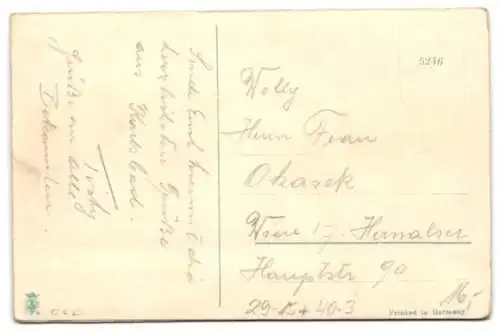 Sende Euch hiermit die
herzlichsten Grüße
aus Karlsbad.
Grüße an alle
Bekannten.
5246
Wolly
Herrn Frau
Okasek
Wien 17. Hernalser
Hauptstr 90
29-15+ 40-3
16,-
Printed in Germany